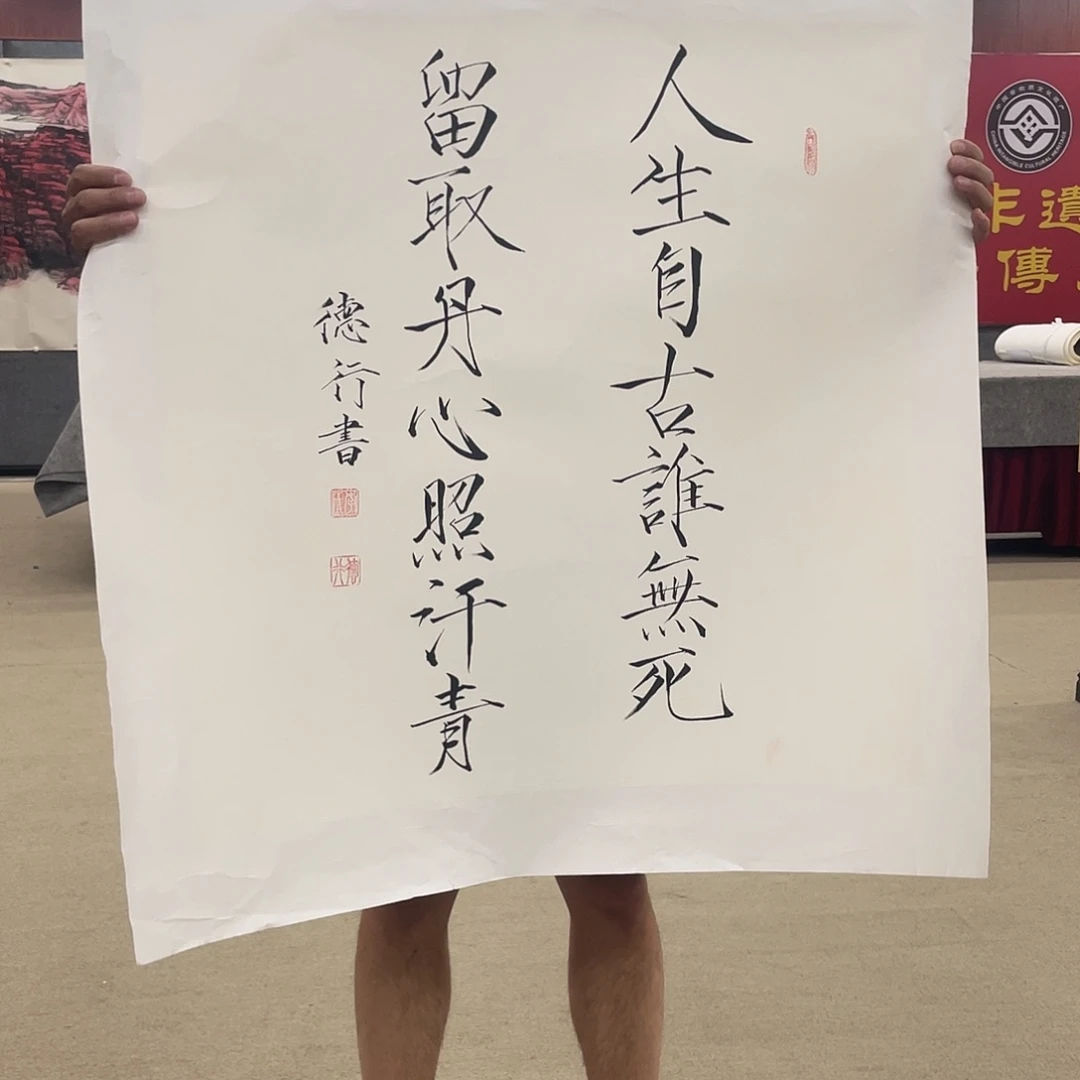 人生自古誰無死
留取丹心照汗青
德行書
CHINA INTANGIBLE CULTURAL HERITAGE
遺
傳